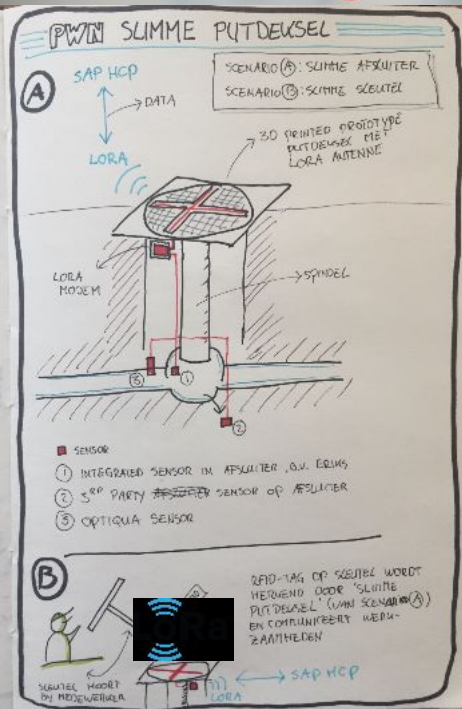 PWN SLIMME PUTDEKSEL
SCENARIO (A): SLIMME AFSLUITER
SCENARIO (B): SLIMME SLEUTEL
A
SAP HCP
DATA
LORA
3D PRINTED PROTOTYPE
PUTDEKSEL MET
LORA ANTENNE
LORA
MODEM
SPINDEL
3
1
2
SENSOR
1 INTEGRATED SENSOR IN AFSLUITER, B.V. ERIKS
2 3RD PARTY SENSOR OP AFSLUITER
3 OPTIQUA SENSOR
B
RFID-TAG OP SLEUTEL WORDT
HERKEND DOOR 'SLIMME
PUTDEKSEL' (VAN SCENARIO (A))
EN COMMUNICEERT WERK-
ZAAMHEDEN
LoRa
SLEUTEL HOORT
BY MEDEWERKER
LORA
SAP HCP